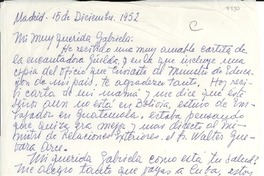 Madrid. 15 de Diciembre. 1952
C
Mi muy querida Gabriela:
He recibido una muy amable cartita de
la encantadora Guilda, y en la que incluye una
copia del oficio que enviaste al Ministro de Educa-
ción de su país. Te agradezco tanto. Hoy reci-
bí carta de mi mamá y que está
aun no está en Bolivia, estuvo de Em-
bajador en Guatemala, estaba pensando
que quizá era mejor y mas directo al mi-
nistro de Relaciones Exteriores. el Sr. Walter Gue-
vara Arce.
Mi querida Gabriela como está tu salud?
Me alegro tanto que vayas a Cuba, estos